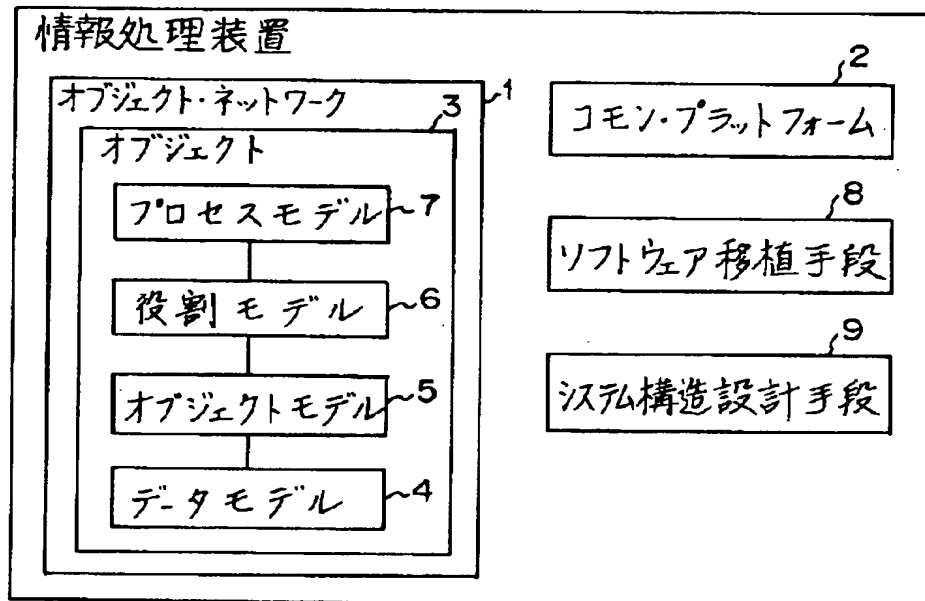 情報処理装置
オブジェクト・ネットワーク
1
オブジェクト
3
プロセスモデル
7
役割モデル
6
オブジェクトモデル
5
データモデル
4
2
コモン・プラットフォーム
8
ソフトウェア移植手段
9
システム構造設計手段